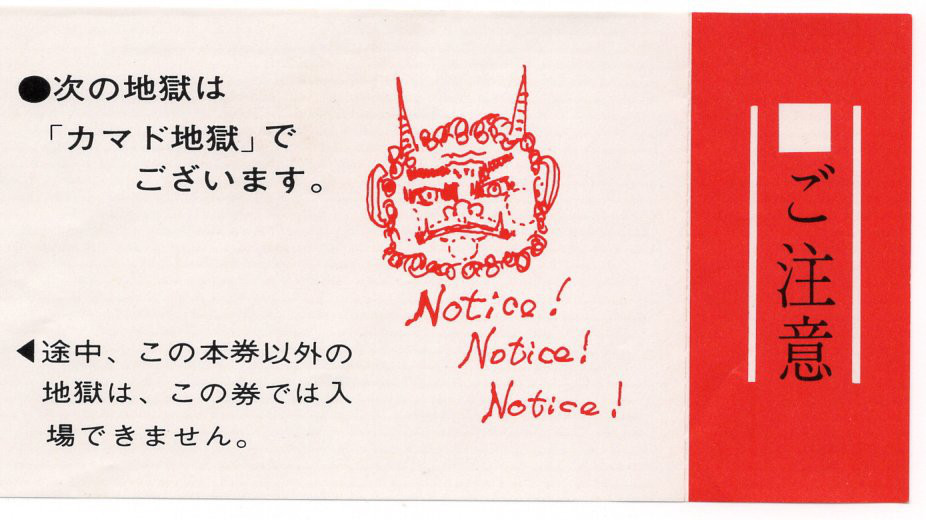 ●次の地獄は
「カマド地獄」で
ございます。
◀途中、この本券以外の
地獄は、この券では入
場できません。
Notice!
Notice!
Notice!
ご注意